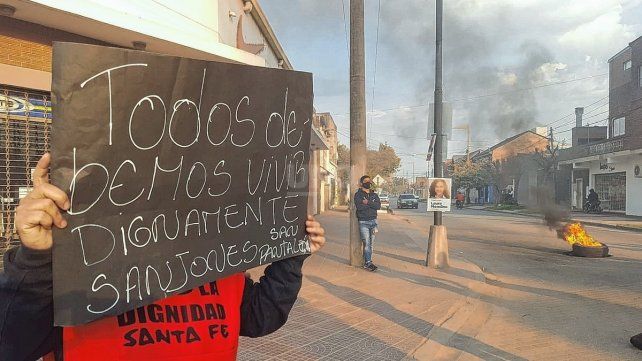 Todos de-
BEMOS VIVIR
DIGNAMENTE
SANJONES SAN
PANTALEÓN
LA
DIGNIDAD
SANTA FE